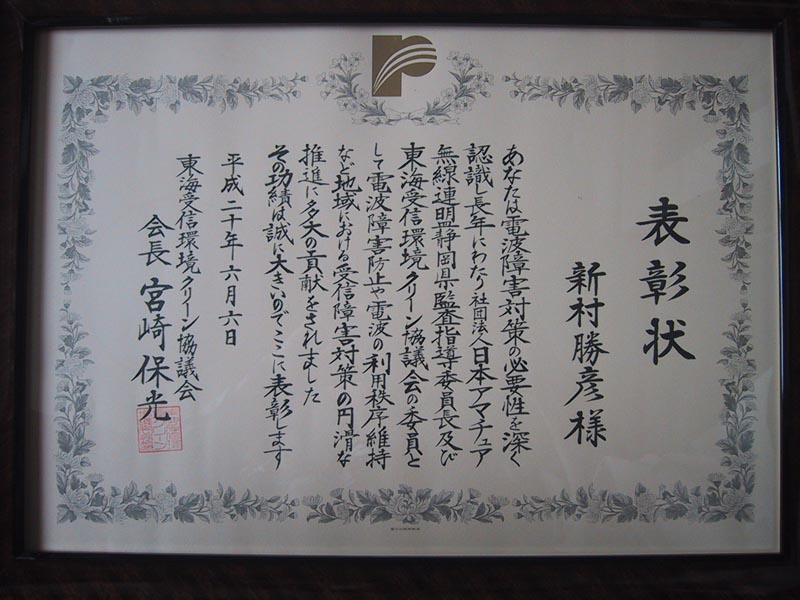 表彰状
新村勝彦様
あなたは電波障害対策の必要性を深く
認識し長年にわたり社団法人日本アマチュア
無線連盟静岡県監査指導委員長及び
東海受信環境クリーン協議会の委員と
して電波障害防止や電波の利用秩序維持
など地域における受信障害対策の円滑な
推進に多大の貢献をされました
その功績は誠に大きいのでここに表彰します
平成二十年六月六日
東海受信環境クリーン協議会
会長 宮崎保光